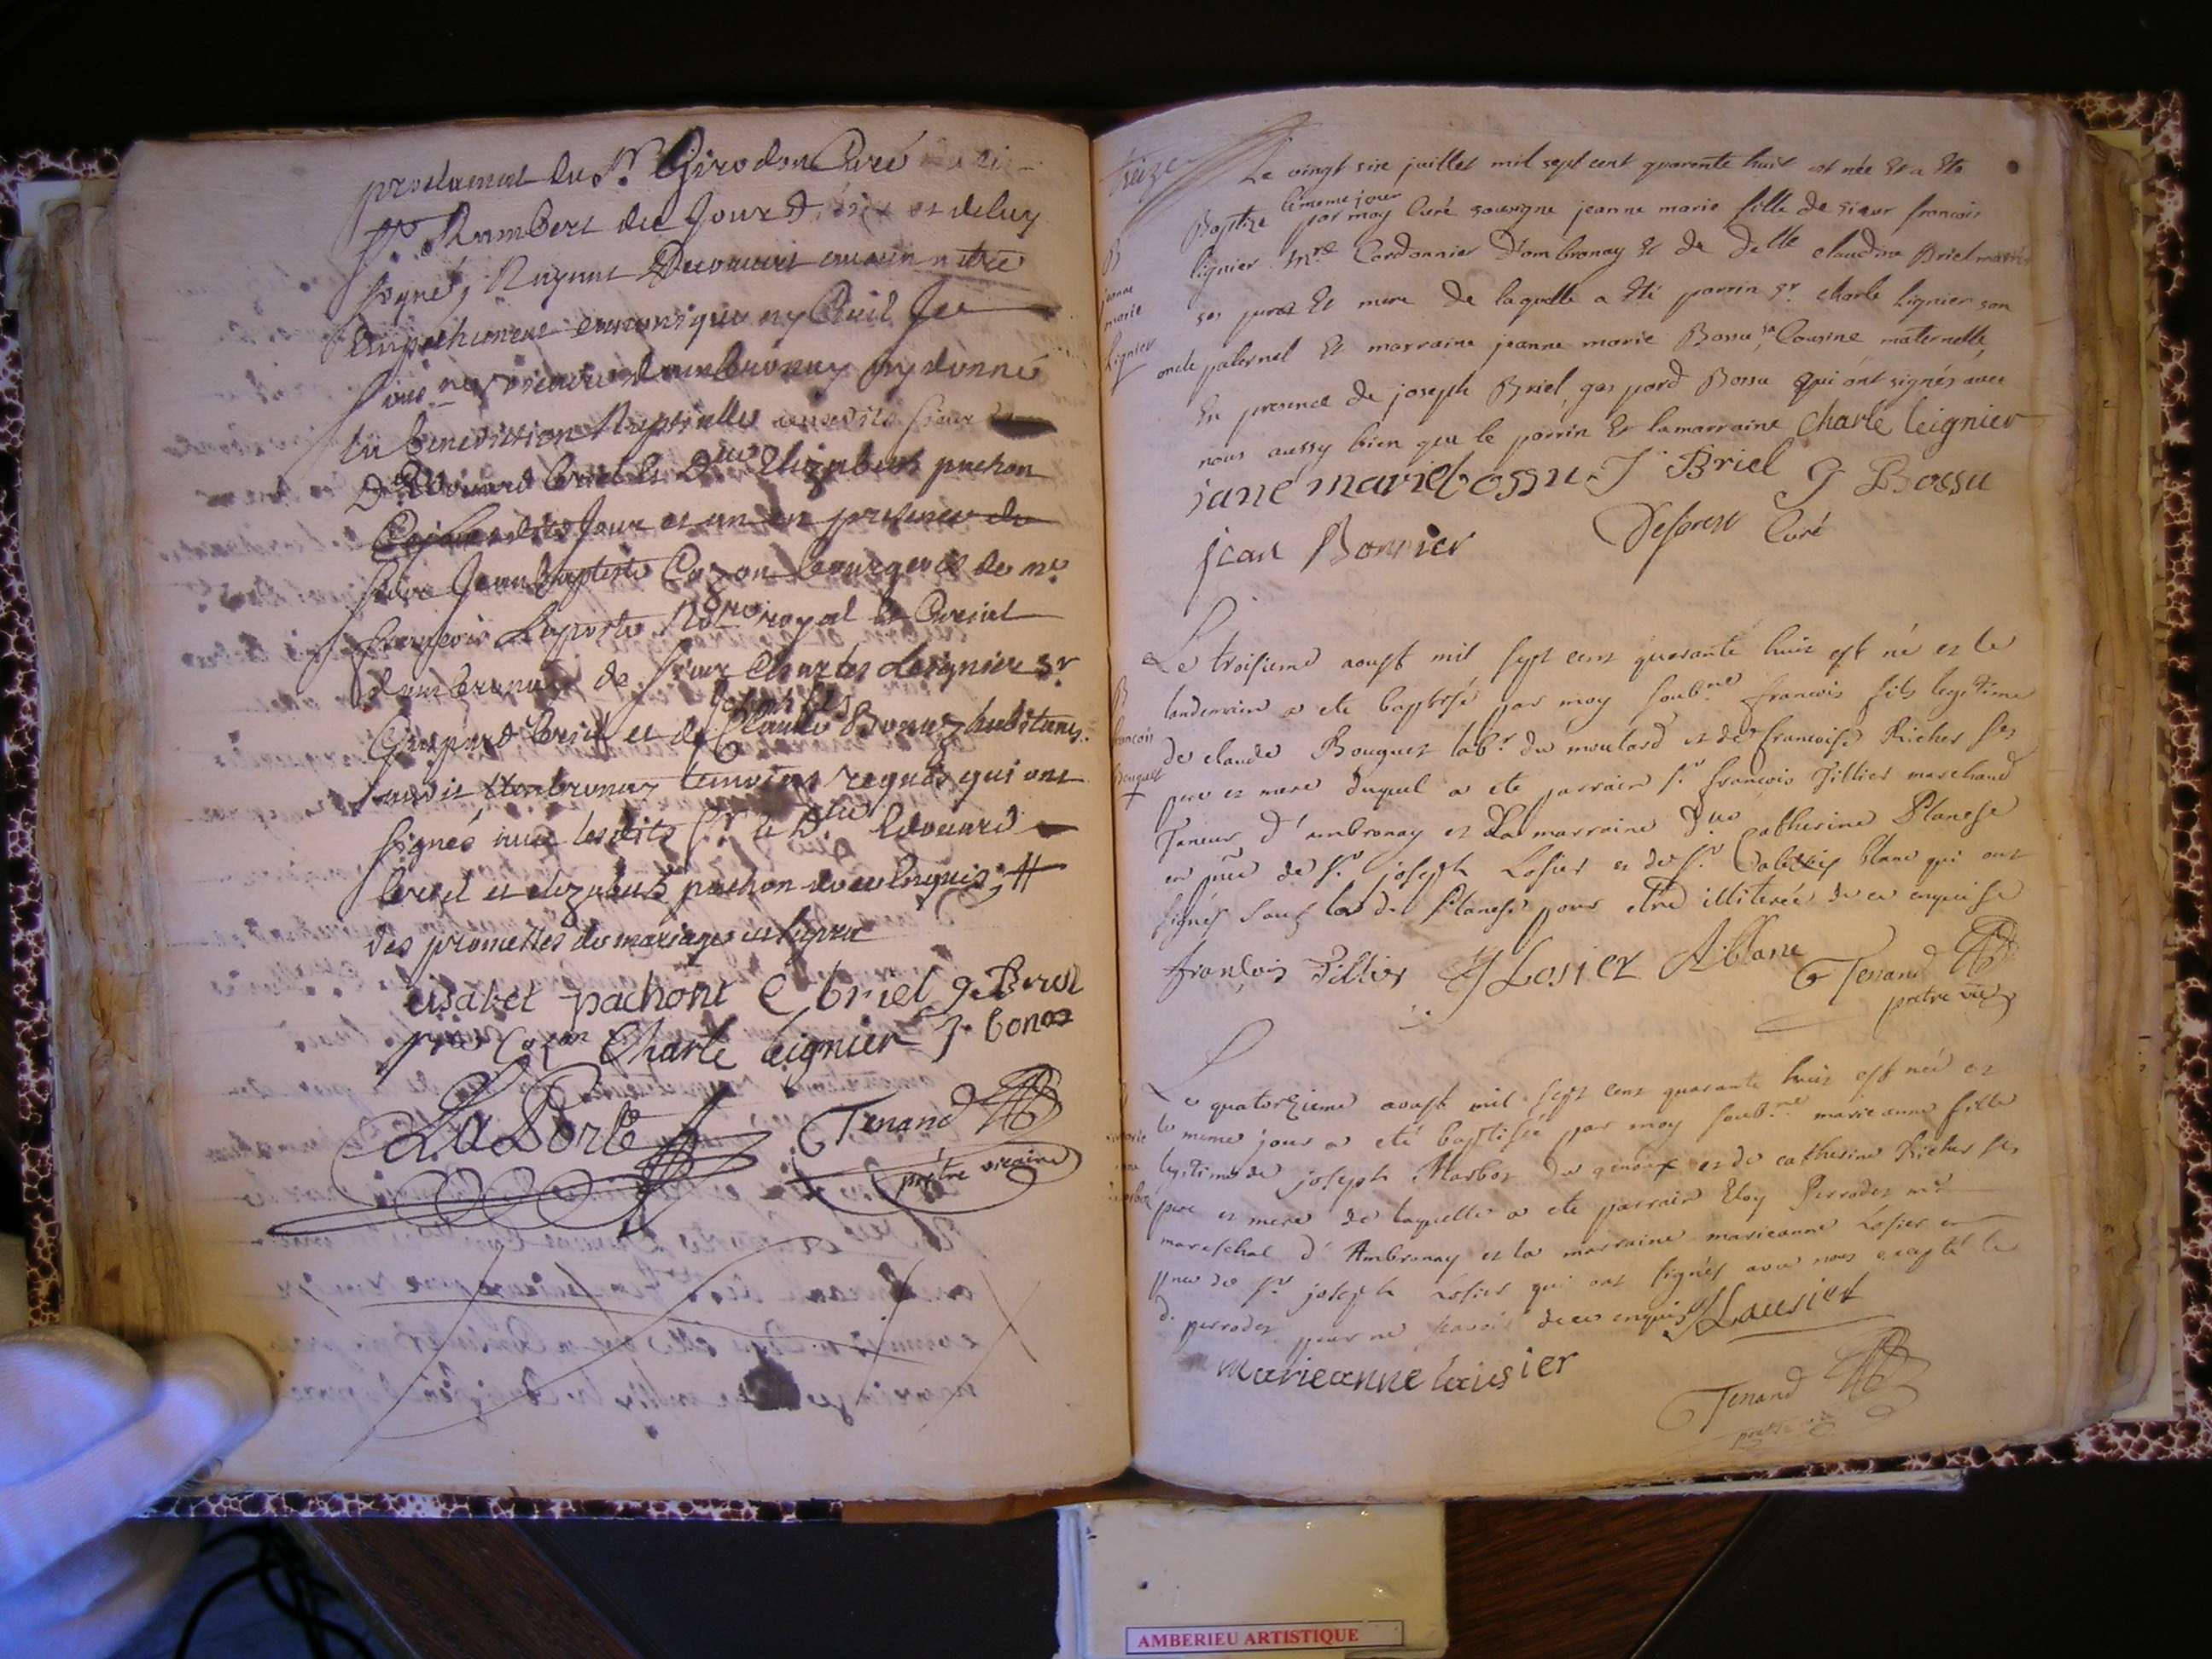 proclamant du Sr Girodon Curé
St Rambert du Jour et de luy
signé, Nayant Decouvert aucun autre
Empechement canonique ny Civil Je
sous né vicaire dambronay ay donné
la benediction Nuptialle auxdits sieur
Edouard briel et Dlle Elizabeth pachon
jour et an en presence du
sieur Jean Baptiste Cozon bourgeois de me
francois Laporte Notre royal et Curial
dambronay de sieur Charles Leignier Sr
Gaspard briel et de Claude Bonaz habitans
audit Ambronay temoins requis qui ont
signés avec lesdits Sr et Dlle Edouard
briel et elizabeth pachon de ce Enquis, #
des promesses de mariage
elisabet pachont E briel g. Briel
Cozon Charle leignier J. bonaz
LaPorte Tenand
prêtre vicaire
treize
Le vingt six juillet mil sept cent quarente huit est née Et a Ete
le meme jour
Baptize par moy Curé sousigne jeanne marie fille de sieur francois
lignier Mre Cordonnier D'ombronay Et de Delle claudine Briel mariés
ses peres Et mere De laquelle a Eté parrin sr charle Lignier son
oncle paternel Et marraine jeanne marie Bossu, sa Cousine maternelle,
En presence de joseph Briel, gaspard Bossu qui ont signés avec
nous aussy bien que le parrin Et lamarraine Charle leignier
jane marie bossu J Briel G Bossu
jean Bonnier Deforest Curé
B
jeanne
marie
Lignier
Le troisieme aoust mil sept cent quarante huit est né et le
landemain a ete baptisé par moy soubné francois fils legitime
de claude Bouquet labr du moulard et de francoise Richer ses
pere et mere duquel a ete parrain sr francois Tillier marchand
Taneur d'ambronay et La marraine dlle Catherine Planese
en pnce de sr joseph Losier et de sr blanc qui ont
signés sauf la d. Planese pour etre illiterée de ce enquise
françois Tillier J Losier A. blanc Tenand
pretre vic
B
francois
bouquet
Le quatorzieme aoust mil sept cent quarante huit est née et
le meme jour a eté baptisée par moy soubné marieanne fille
legitime de joseph Marbos du genoux et de catherine Richer ses
pere et mere de laquelle a ete parrain Eloy Perrodet me
mareschal d'Ambronay et la marraine marieanne Losier en
pnce de sr joseph Losier qui ont signés avec nous excepté le
d. perrodet pour ne scavoir de ce enquis J Lausier
marieanne lausier
Tenand
pretre vic
AMBERIEU ARTISTIQUE